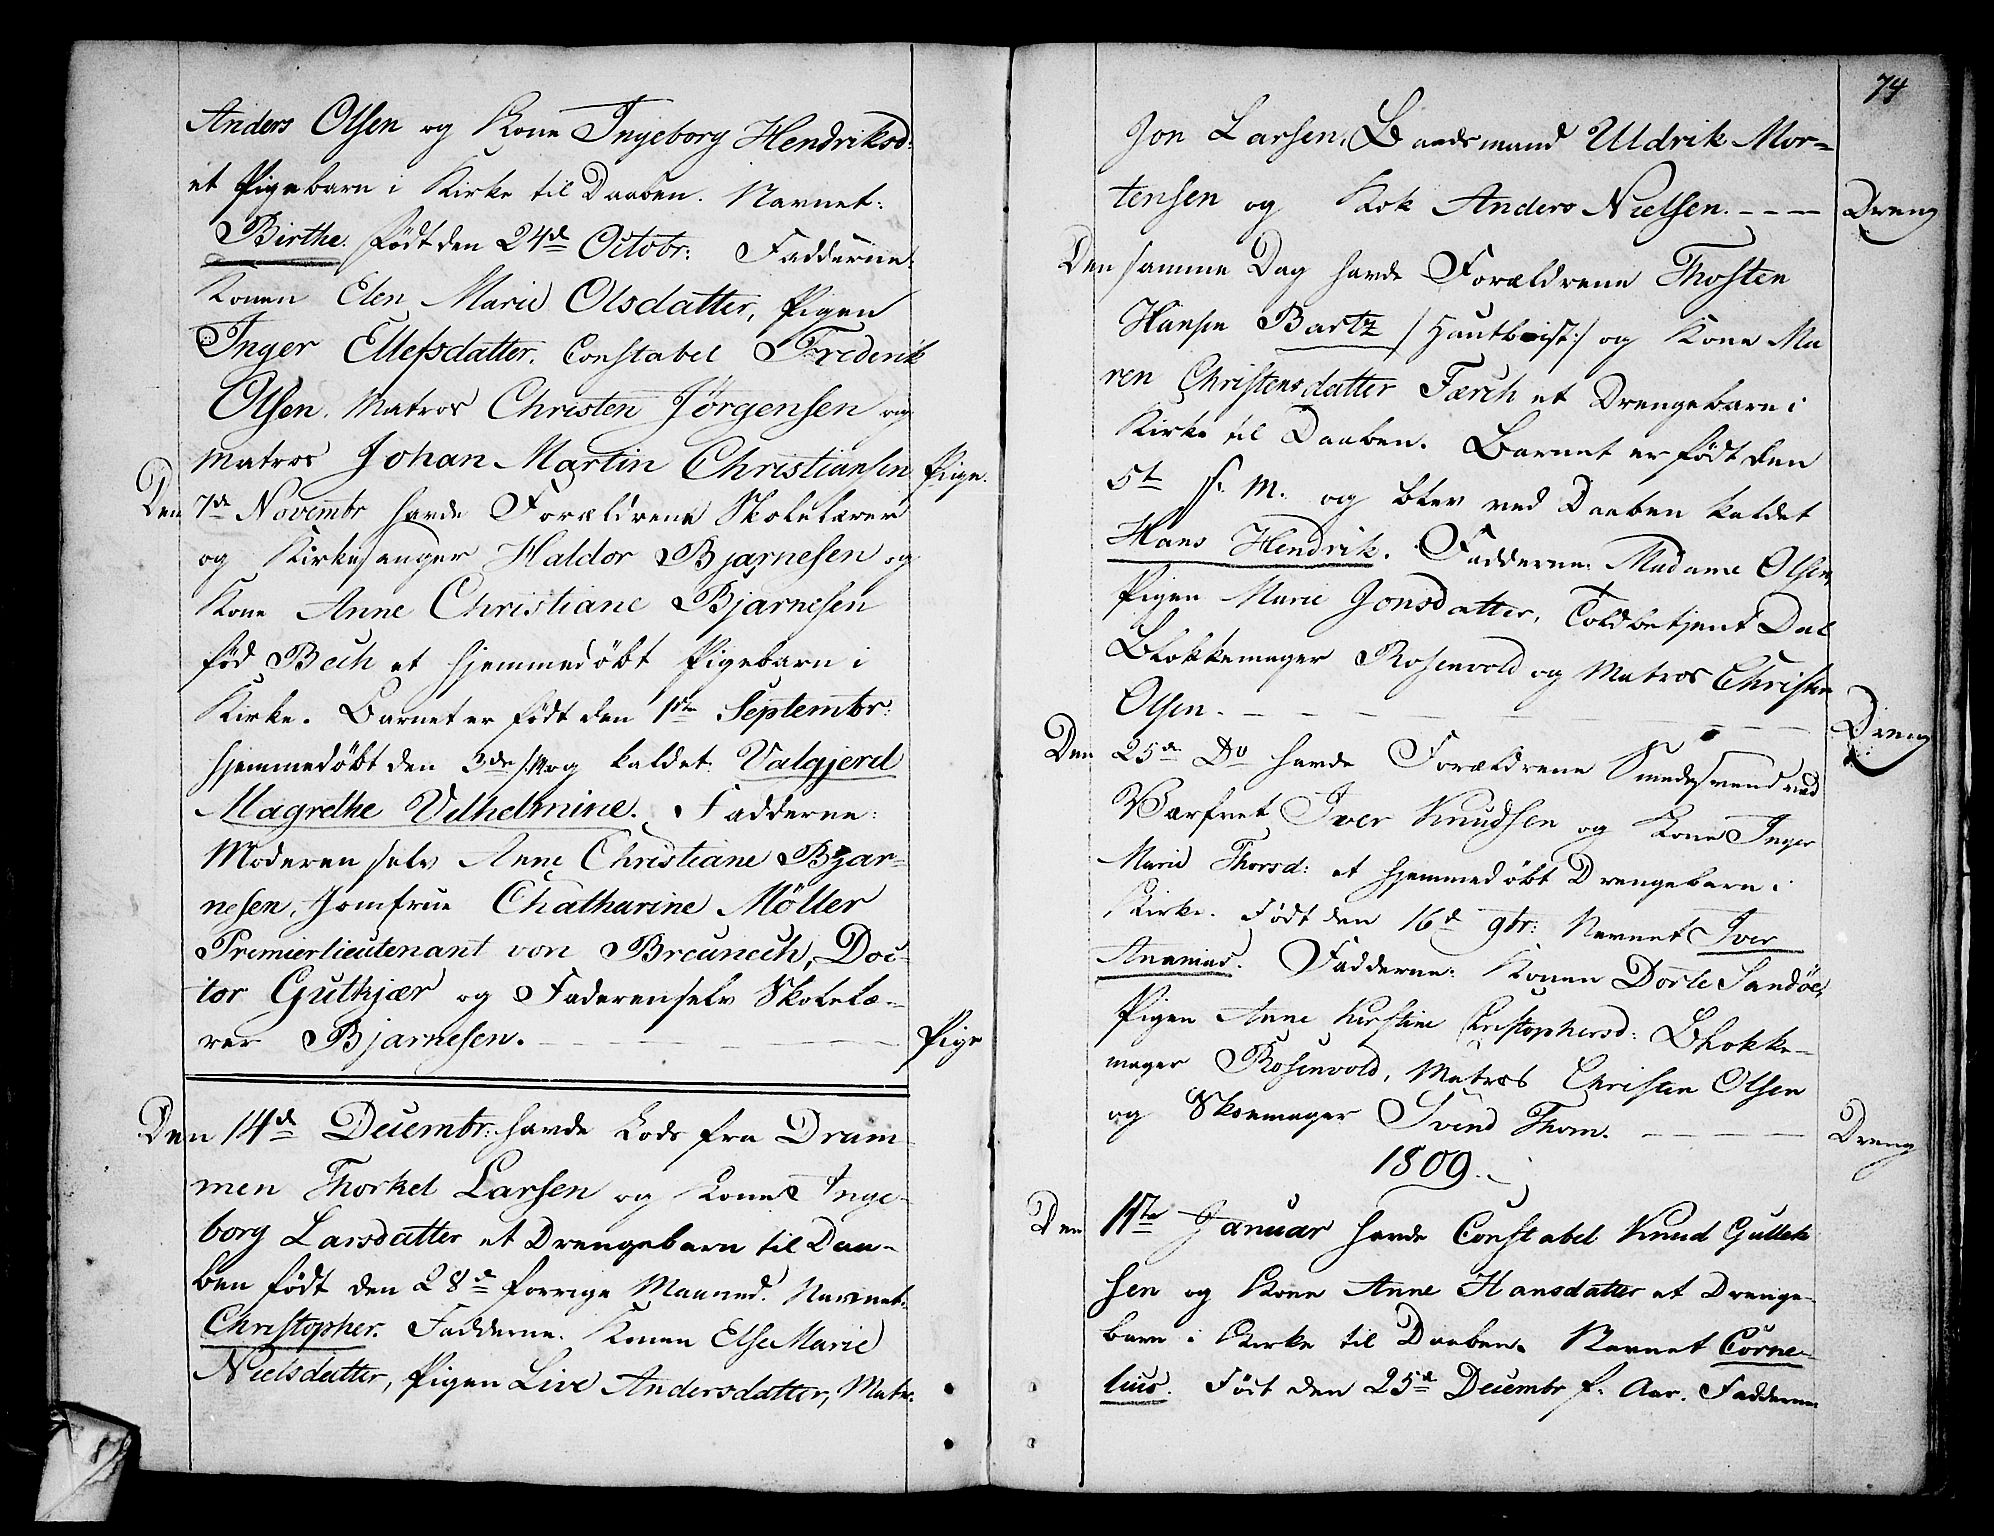 Anders Olsen og Kone Ingeborg Hendriksd:
et Pigebarn i Kirke til Daaben. Navnet:
Birthe. født den 24de Octobr: Fadderne:
Konen Elen Marie Olsdatter, Pigen
Inger Ellefsdatter. Constabel Frederik
Olsen. Matros Christen Jørgensen og
Matros Johan Martin Christiansen Pige.
Den 7de Novembr havde Forældrene Skolelærer
og Kirkesanger Haldor Bjarnesen og
Kone Anne Christiane Bjarnesen
fød Bech et hjemmedøbt Pigebarn i
Kirke. Barnet er født den 1ste Septembr:
hjemmedøbt den 3die og kaldet: Valgjerd
Magrethe Vilhelmine. Fadderne:
Moderen selv Anne Christiane Bjar-
nesen, Jomfrue Chatharine Möller
Premierlieutenant von Breunech, Doc-
tor Gulkjær og Faderen selv Skolelæ-
rer Bjarnesen. Pige
Den 14de Decembr: havde Lods fra Dram-
men Thorkel Larsen og Kone Inge-
borg Larsdatter et Drengebarn til Daa-
ben født den 28de forrige Maaned. Navnet:
Christopher. Fadderne. Konen Else Marie
Nielsdatter, Pigen Live Andersdatter, Matr.
74
Jon Larsen, Baadsmand Uldrik Mor-
tensen og Kok Anders Nielsen. - - - Dreng
Den samme Dag havde Forældrene Thosten
Hansen Bartz /:Hautboist:/ og Kone Ma
ren Christensdatter Færch et Drengebarn i
Kirke til Daaben. Barnet er født den
5te s. M. og blev ved Daaben kaldet
Hans Hendrik. Fadderne: Madame Olsen,
Pigen Marie Jonsdatter, Toldbetjent Dal
Blokkemager Rosenvold og Matros Christen
Olsen. Dreng
Den 25de Do havde Forældrene Smedesvend ved
Værfret Iver Knudsen og Kone Inger
Marie Thorsd: et hjemmedøbt Drengebarn i
Kirke. Født den 16de 9br: Navnet Iver
Ananias. Fadderne: Konen Dorte Sandöe,
Pigen Anne Kirstine Christophersd: Blokke-
mager Rosenvold, Matros Christen Olsen
og Skoemager Svend Thom. Dreng
1809.
Den 1ste Januar havde Constabel Knud Gullek
sen og Kone Anne Hansdatter et Drenge-
barn i Kirke til Daaben. Navnet Corne-
lius. Født den 25de Decembr f. Aar. Fadderne